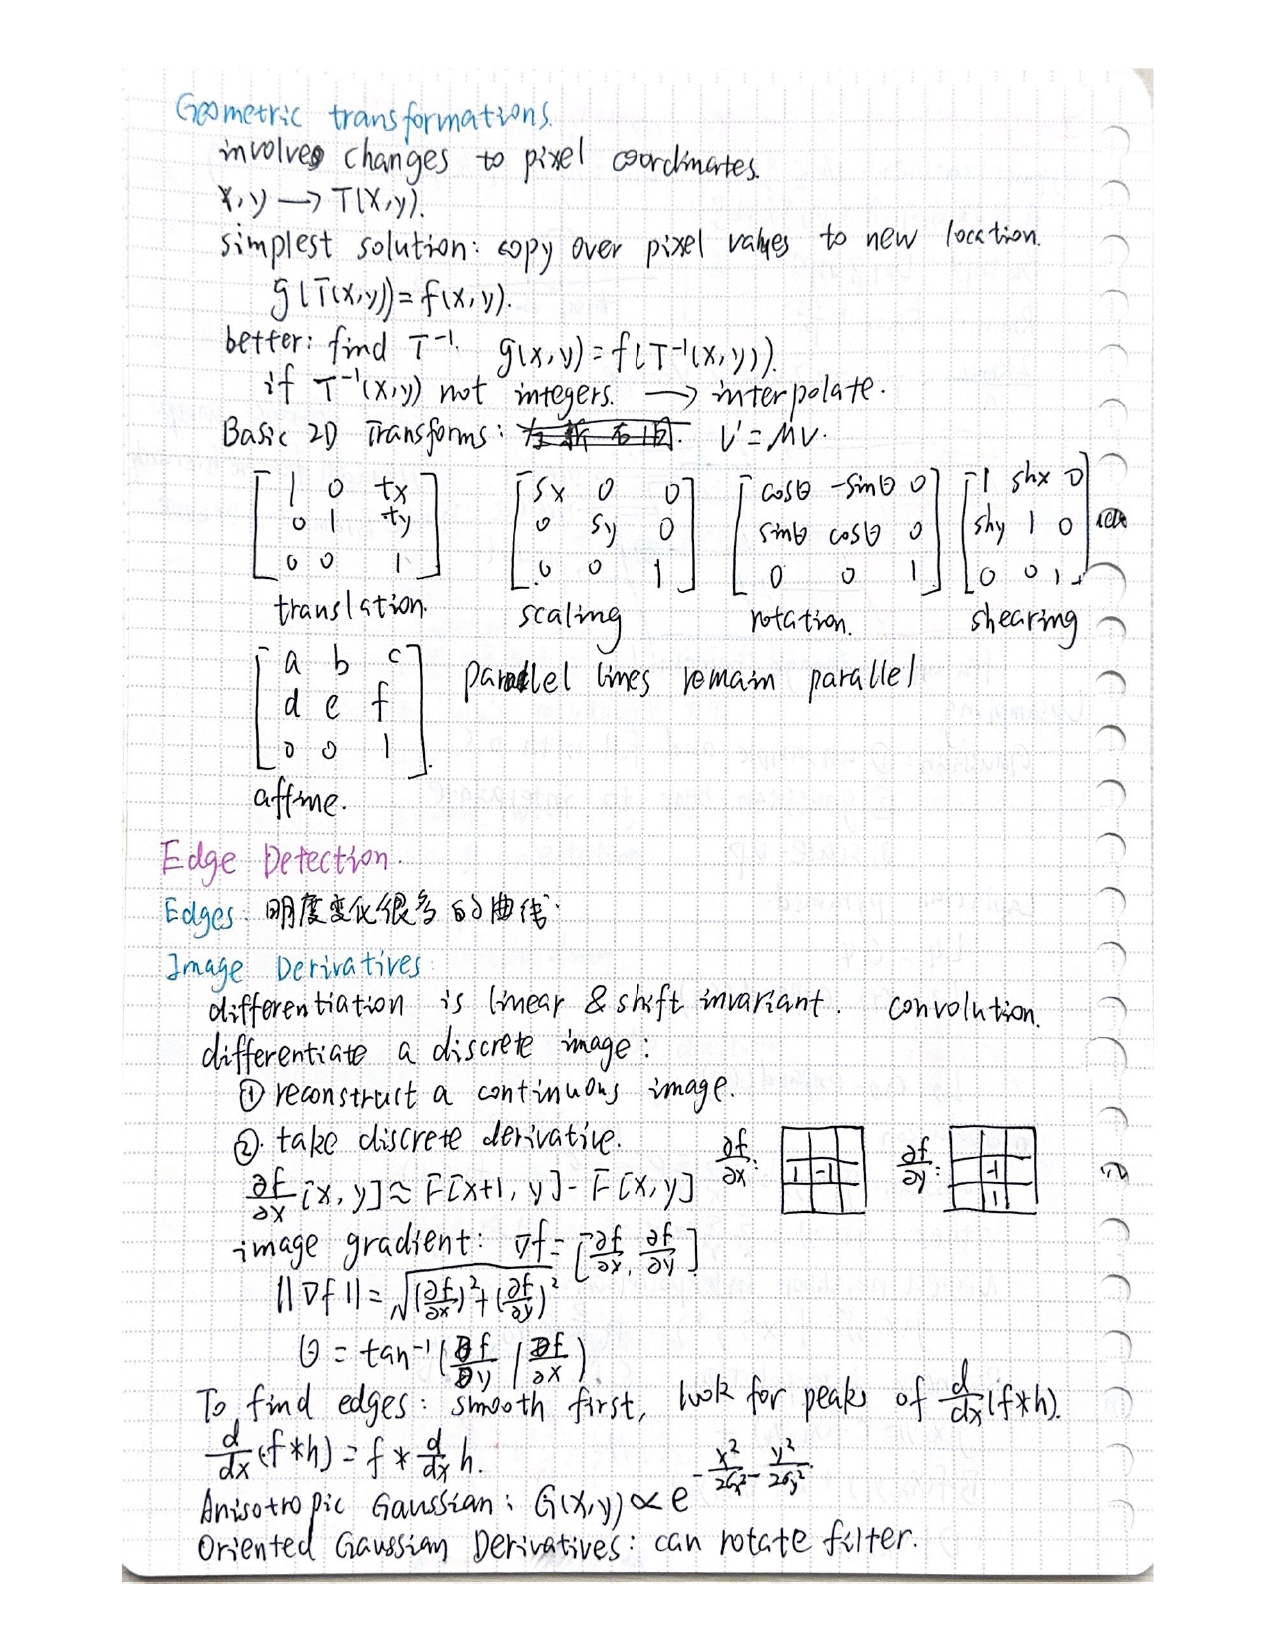 Geometric transformations.
involves changes to pixel coordinates.
x,y → T(x,y).
simplest solution: copy over pixel values to new location.
g(T(x,y)) = f(x,y).
better: find T⁻¹. g(x,y) = f(T⁻¹(x,y)).
if T⁻¹(x,y) not integers. → interpolate.
Basic 2D Transforms: V' = MV.
[1 0 tx [sx 0 0 [cosθ -sinθ 0 [1 shx 0
0 1 ty 0 sy 0 sinθ cosθ 0 shy 1 0
0 0 1] 0 0 1] 0 0 1] 0 0 1]
translation. scaling rotation. shearing
[a b c
d e f parallel lines remain parallel
0 0 1].
affine.
Edge Detection.
Edges: 明度变化很多的曲线.
Image Derivatives
differentiation is linear & shift invariant. convolution.
differentiate a discrete image:
① reconstruct a continuous image.
②. take discrete derivative. ∂f/∂x: 1 -1 ∂f/∂y: -1 1
∂F/∂x [x, y] ≈ F[x+1, y] - F[x, y]
image gradient: ∇f = [∂f/∂x, ∂f/∂y]
||∇f|| = √(∂f/∂x)² + (∂f/∂y)²
θ = tan⁻¹(∂f/∂y / ∂f/∂x)
To find edges: smooth first, look for peaks of d/dx(f*h).
d/dx(f*h) = f * d/dx h.
Anisotropic Gaussian: G(x,y) ∝ e^(-x²/2σx² - y²/2σy²).
Oriented Gaussian Derivatives: can rotate filter.